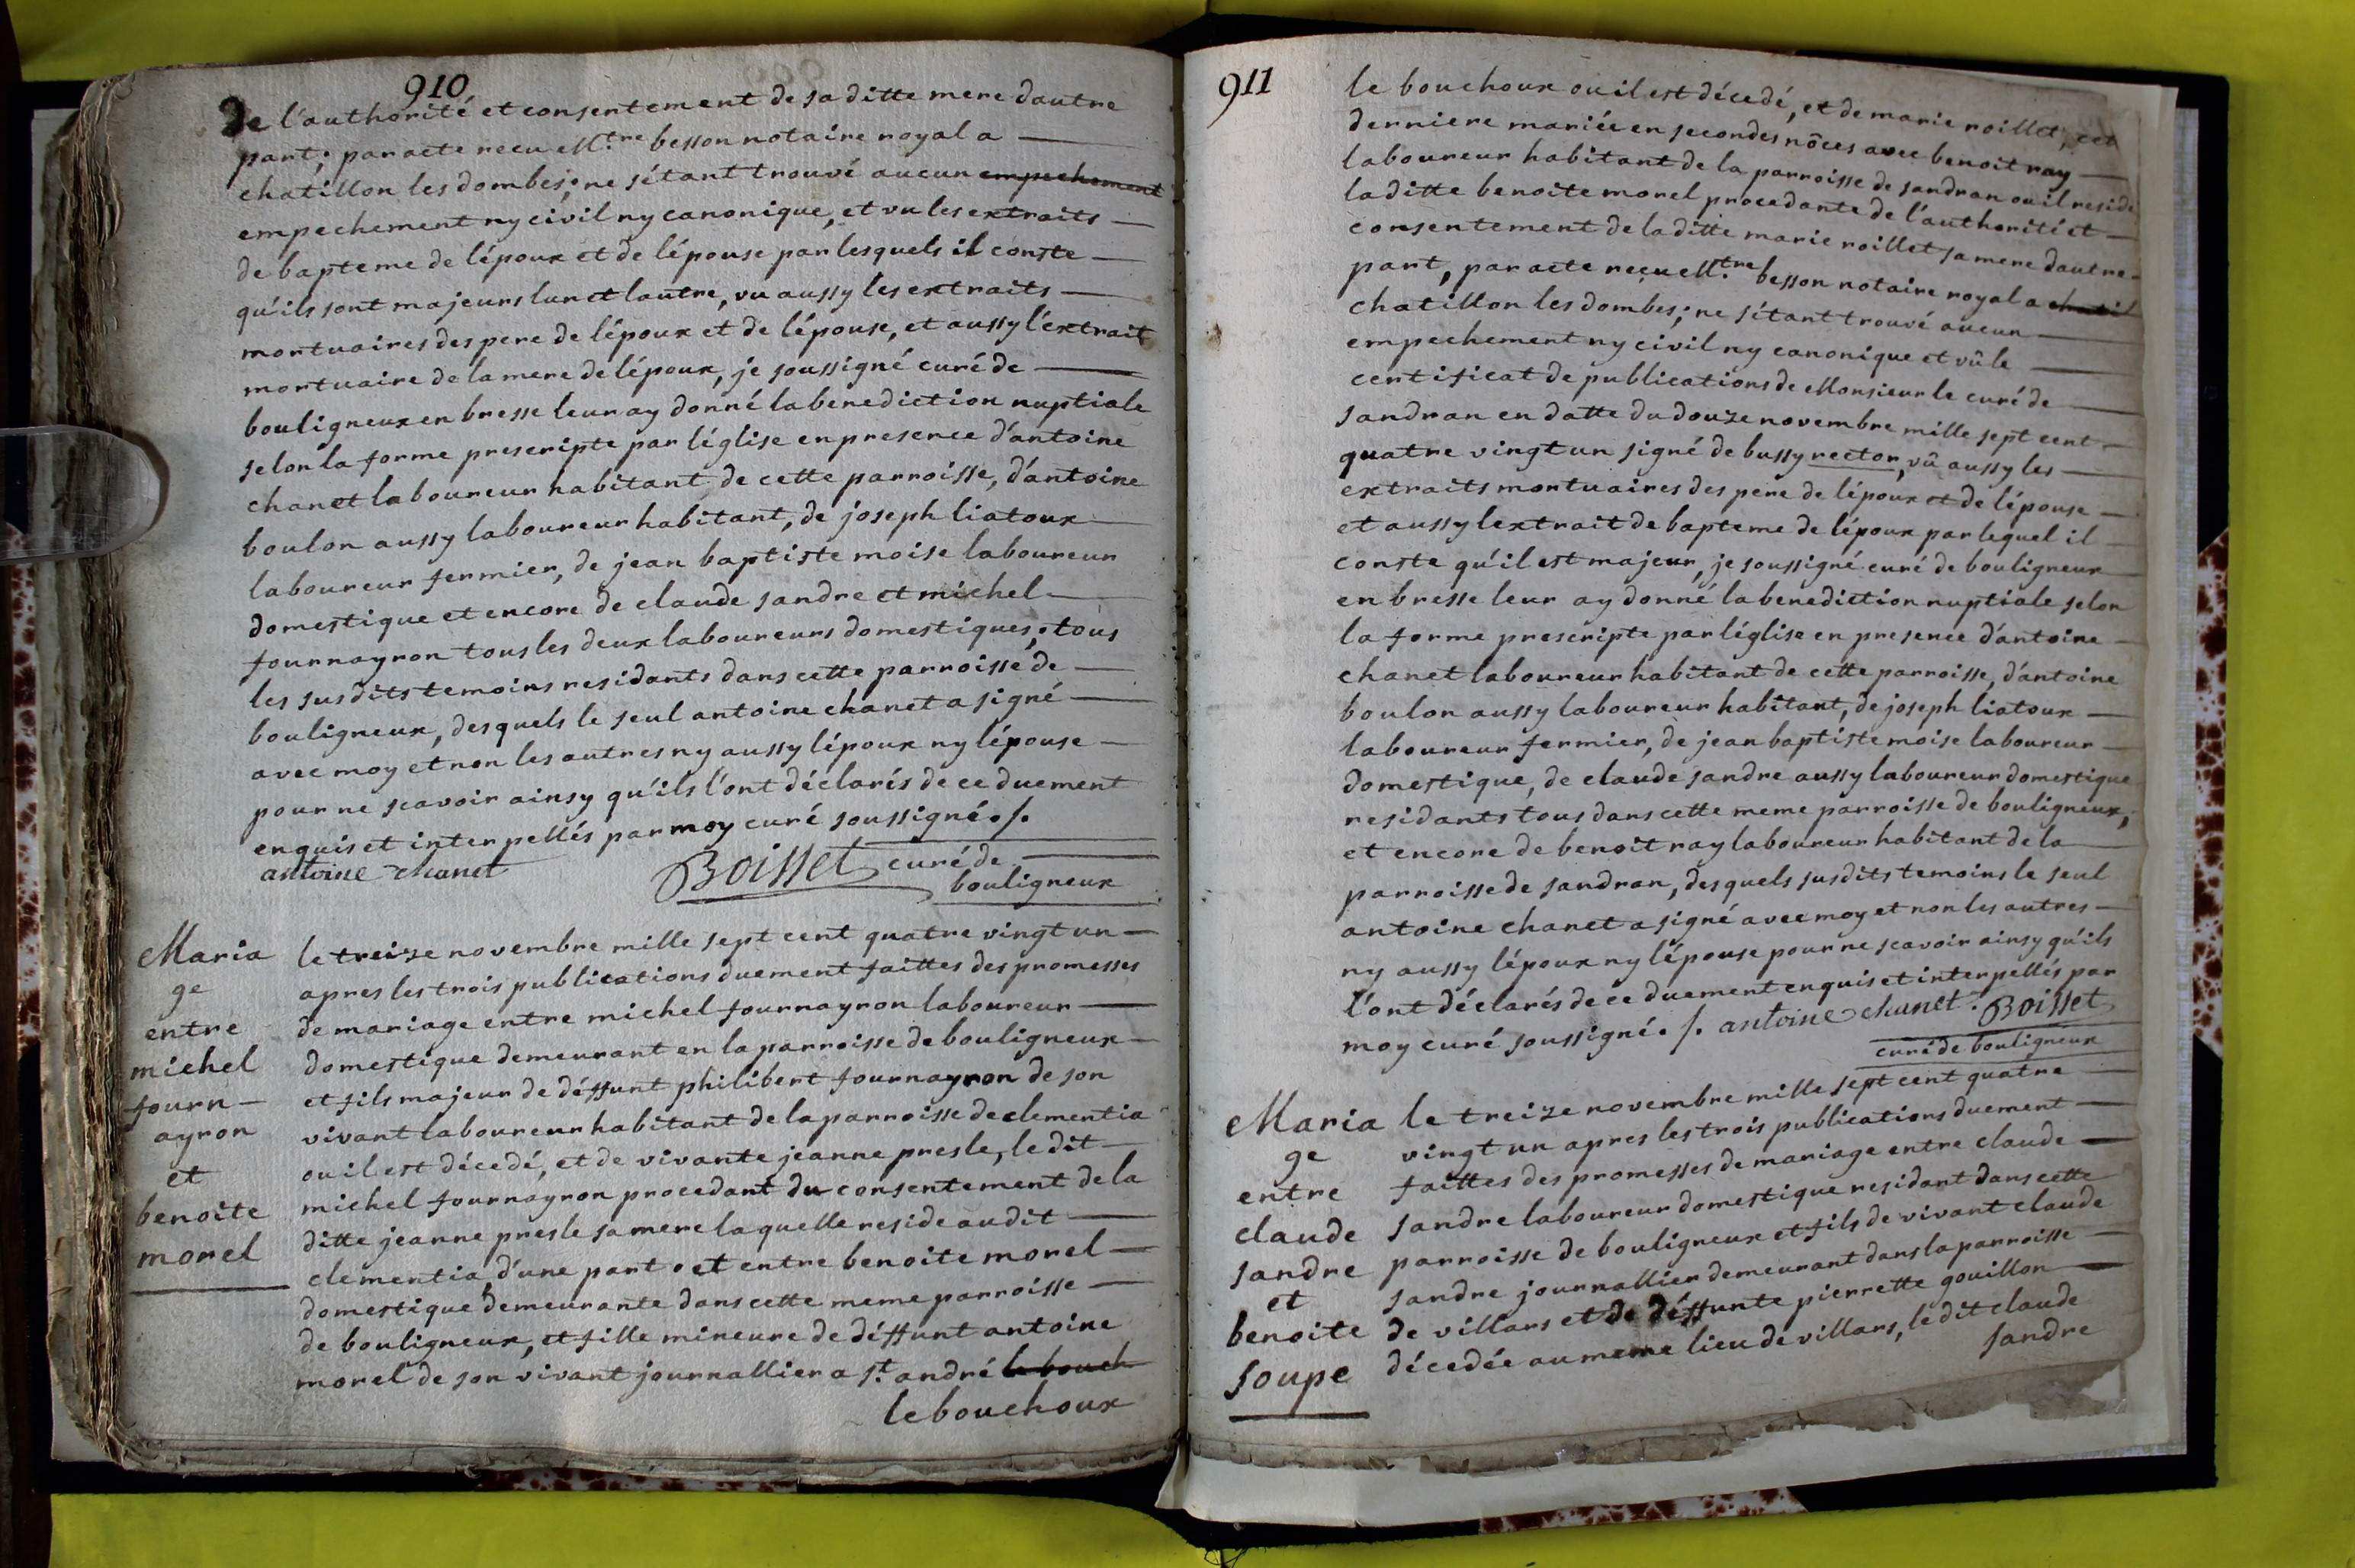 910
de l'authorité et consentement de sa ditte mere dautre
part; par acte recu Mtre besson notaire royal a
chatillon les dombes; ne s'étant trouvé aucun empechement
empechement ny civil ny canonique, et vu les extraits
de bapteme de l'époux et de l'épouse par lesquels il conste
qu'ils sont majeurs lun et lautre, vu aussy les extraits
mortuaires des pere de l'époux et de l'épouse, et aussy l'extrait
mortuaire de la mere de l'époux, je soussigné curé de
bouligneux en bresse leur ay donné la benediction nuptiale
selon la forme prescripte par l'église en presence d'antoine
chanet laboureur habitant de cette parroisse, d'antoine
boulon aussy laboureur habitant, de joseph liatoux
laboureur fermier, de jean baptiste moise laboureur
domestique et encore de claude sandre et michel
fournayron tous les deux laboureurs domestiques, tous
les susdits temoins residants dans cette parroisse de
bouligneux, desquels le seul antoine chanet a signé
avec moy et non les autres ny aussy l'époux ny l'épouse
pour ne scavoir ainsy qu'ils l'ont déclarés de ce duement
enquis et interpellés par moy curé soussigné ./.
antoine chanet Boisset curé de
bouligneux
Maria
ge
entre
michel
fourn-
ayron
et
benoite
morel
le treize novembre mille sept cent quatre vingt un
apres les trois publications duement faittes des promesses
de mariage entre michel fournayron laboureur
domestique demeurant en la parroisse de bouligneux
et fils majeur de déffunt philibert fournayron de son
vivant laboureur habitant de la parroisse de clementia
ou il est décedé, et de vivante jeanne presle, le dit
michel fournayron procedant du consentement de la
ditte jeanne presle sa mere laquelle reside au dit
clementia, d'une part . et entre benoite morel
domestique demeurante dans cette meme parroisse
de bouligneux, et fille mineure de déffunt antoine
morel de son vivant journallier a st. andré le bouch
le bouchoux
911
le bouchoux ou il est décedé, et de marie roillet, cet
derniere mariée en secondes nôces avec benoit ray
laboureur habitant de la parroisse de sandran ou il reside
la ditte benoite morel procedante de l'authorité et
consentement de la ditte marie roillet sa mere dautre
part, par acte reçu Mtre besson notaire royal a chatil
chatillon les dombes; ne s'étant trouvé aucun
empechement ny civil ny canonique et vû le
certificat de publications de Monsieur le curé de
sandran en datte du douze novembre mille sept cent
quatre vingt un signé de bussy rector, vû aussy les
extraits mortuaires des pere de l'époux et de l'épouse
et aussy lextrait de bapteme de l'époux par lequel il
conste qu'il est majeur, je soussigné curé de bouligneux
en bresse leur ay donné la benediction nuptiale selon
la forme prescripte par l'église en presence d'antoine
chanet laboureur habitant de cette parroisse, d'antoine
boulon aussy laboureur habitant, de joseph liatoux
laboureur fermier, de jean baptiste moise laboureur
domestique, de claude sandre aussy laboureur domestique
residants tous dans cette meme parroisse de bouligneux;
et encore de benoit ray laboureur habitant de la
parroisse de sandran, desquels susdits temoins le seul
antoine chanet a signé avec moy et non les autres
ny aussy l'époux ny l'épouse pour ne scavoir ainsy qu'ils
l'ont déclarés de ce duement enquis et interpellés par
moy curé soussigné. /. antoine chanet. Boisset
curé de bouligneux
Maria
ge
entre
claude
sandre
et
benoite
soupe
le treize novembre mille sept cent quatre
vingt un apres les trois publications duement
faittes des promesses de mariage entre claude
sandre laboureur domestique residant dans cette
parroisse de bouligneux et fils de vivant claude
sandre journallier demeurant dans la parroisse
de villars et de déffunte pierrette gouillon
décedée au meme lieu de villars, le dit claude
sandre